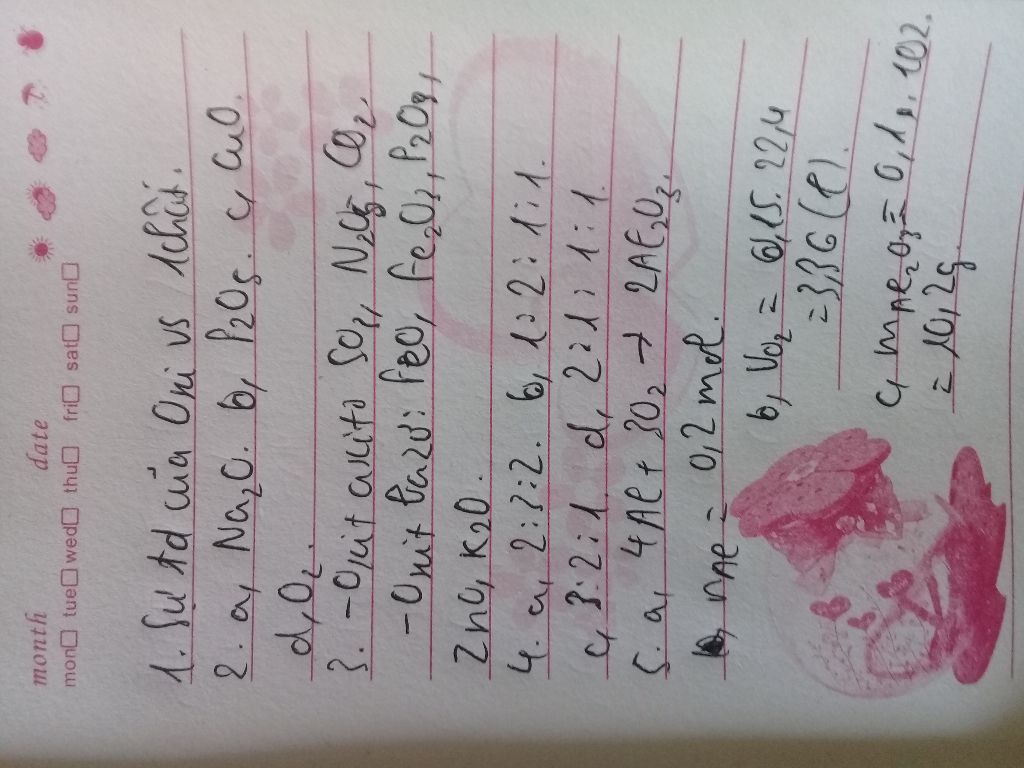 month date
mon tue wed thu fri sat sun
1. Sự td của Oxi vs 1chất.
2. a, Na2O. b, P2O5. c, CuO.
d, O2.
3. - Oxit axit: SO3, N2O5, CO2.
- Oxit bazơ: FeO, Fe2O3, P2O5,
ZnO, K2O.
4. a, 2:3:2. b, 1:2:1:1.
c, 3:2:1. d, 2:1:1:1.
5. a, 4Al + 3O2 → 2Al2O3.
nAl = 0,2 mol.
b, VO2 = 0,15. 22,4
= 3,36 (l).
c, mAl2O3 = 0,1. 102.
= 10,2g.